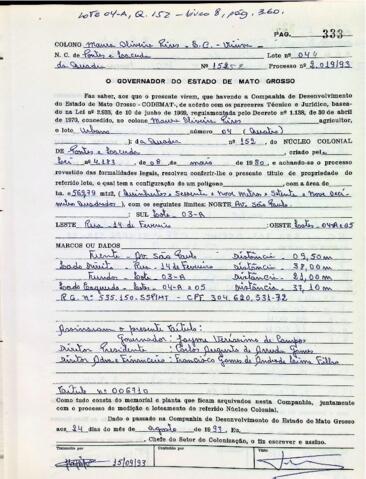 Lote 04-A, Q. 152 - Livro 8, pág. 360.
PAG. 333
COLONO Maura Oliveira Pires - B.C. - Viúva
N. C. de Pontes e Lacerda Lote nº 04
da Quadra Nº 152 Processo nº 2.019/93
O GOVERNADOR DO ESTADO DE MATO GROSSO
Faz saber, aos que o presente virem, que havendo a Companhia de Desenvolvimento
do Estado de Mato Grosso - CODEMAT-, de acôrdo com os pareceres Técnico e Jurídico, basea-
do na Lei nº 2.939, de 10 de junho de 1969, regulamentada pelo Decreto nº 1.138, de 30 de abril
de 1970, concedido, no colono Maura Oliveira Pires agricultor,
o lote Urbano número 04 (Quatro)
); da Quadra nº 152, DO NÚCLEO COLONIAL
DE Pontes e Lacerda, criado pela
Lei nº 4.183, de 08, de maio de 1980, e achando-se o processo
revestido das formalidades legais, resolveu conferir-lhe o presente título de propriedade do
referido lote, o qual tem a configuração de um polígono com a área de
ha.
Decímetros Quadrados), com os seguintes limites: NORTE Av. São Paulo
SUL Lote 03-A
LESTE Rua 14 de Fevereiro OESTE Lotes 04-A e 05
MARCOS OU DADOS
Frente - Av. São Paulo Distância - 09,50m
Lado Direito - Rua 14 de Fevereiro Distância - 38,00m
Fundo - Lote 03-A Distância - 21,00m
Lado Esquerdo - Lote 04-A e 05 Distância - 37,10m
R.G. nº 535.150.SSP/MT - CPF 304.620.531-72
Assinaram o presente título:
Governador: Jayme Veríssimo de Campos
Diretor Presidente: Carlos Augusto de Arruda Gomes
Diretor Adm. e Financeiro: Francisco Gomes de Andrade Lima Filho
Título nº 006710
Como tudo consta do memorial e planta que ficam arquivados nesta Companhia, juntamente
com o processo de medição e loteamento do referido Núcleo Colonial.
Dado e passado na Companhia de Desenvolvimento do Estado de Mato Grosso
aos 24 dias do mês de agosto de 1993. Eu,
, Chefe do Setor de Colonização, o fiz escrever e assino.
Conferido Visto
15/09/93